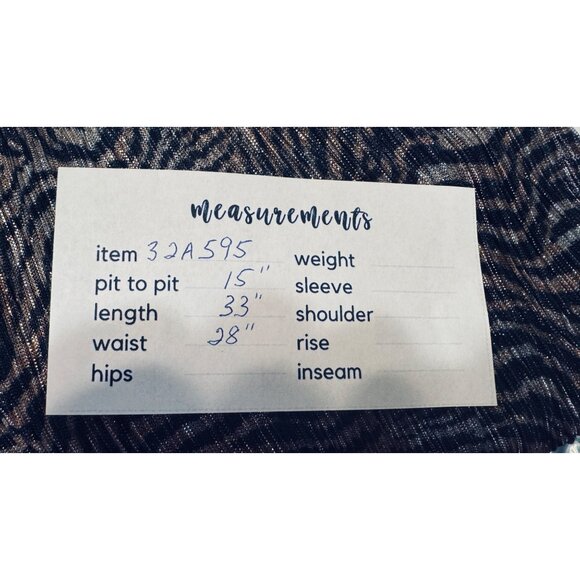 measurements
item 32A595
pit to pit 15"
length 33"
waist 28"
hips
weight
sleeve
shoulder
rise
inseam